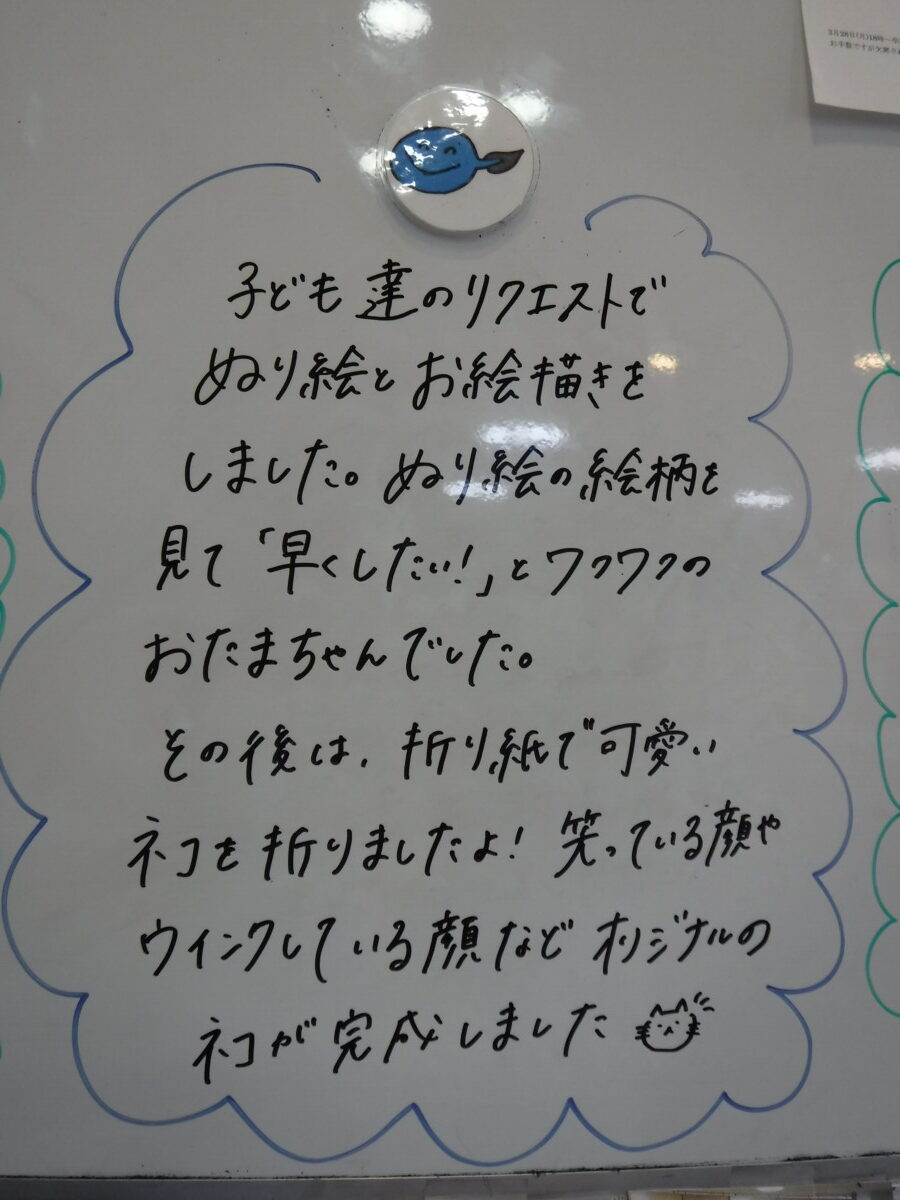 3月28日(月)18時〜
お手数ですが欠席
子ども達のリクエストで
ぬり絵とお絵描きを
しました。ぬり絵の絵柄を
見て「早くしたい!」とワクワクの
おたまちゃんでした。
その後は、折り紙で可愛い
ネコを折りましたよ!笑っている顔や
ウインクしている顔などオリジナルの
ネコが完成しました